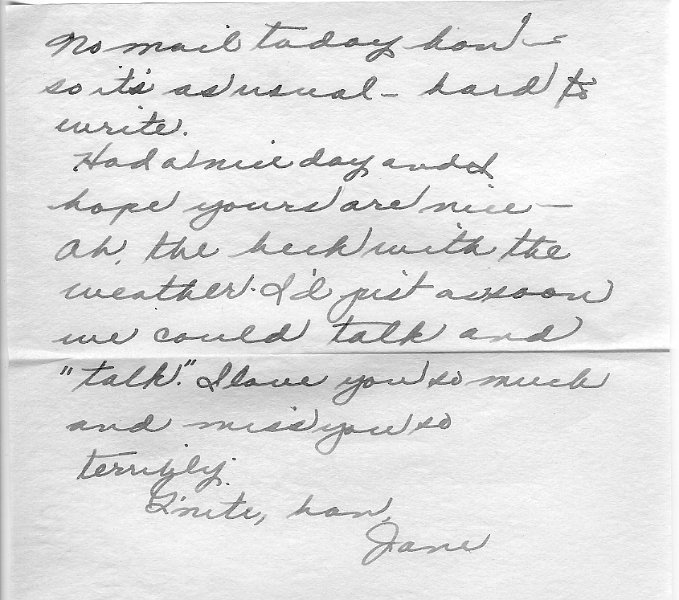 No mail today hon' –
so it's as usual – hard to
write.
Had a nice day and I
hope yours are nice –
Oh, the heck with the
weather. I'd just as soon
we could talk and
"talk." I love you so much
and miss you so
terribly.
G'nite, hon,
Jane